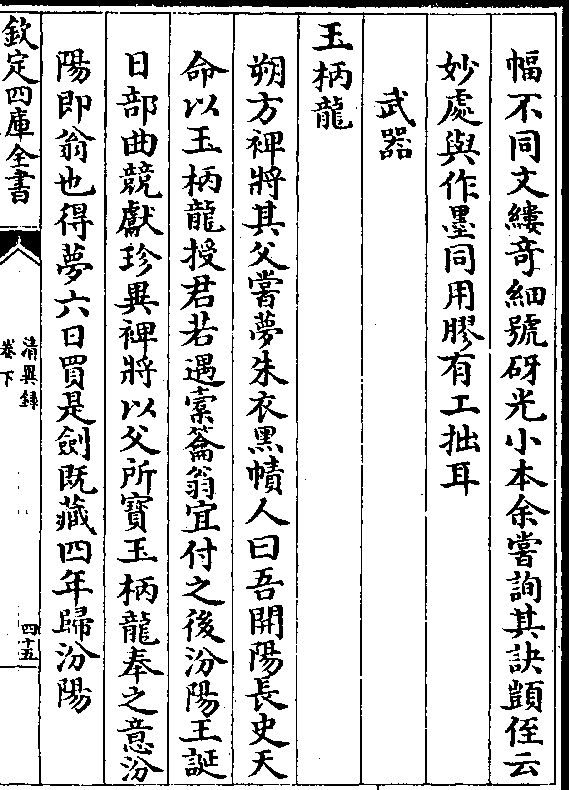 幅不同文縷竒細號砑光小本余嘗詢其訣顗侄云
妙處與作墨同用膠有工拙耳
武器
玉柄龍
朔方裨將其父嘗夢朱衣黑幘人曰吾開陽長史天
命以玉柄龍授君若遇索籥翁宜付之後汾陽王誕
日部曲競獻珍異裨將以父所寳玉柄龍奉之意汾
陽即翁也得夢六日買是劍既藏四年歸汾陽
欽定四庫全書
清異錄
卷下
四十五